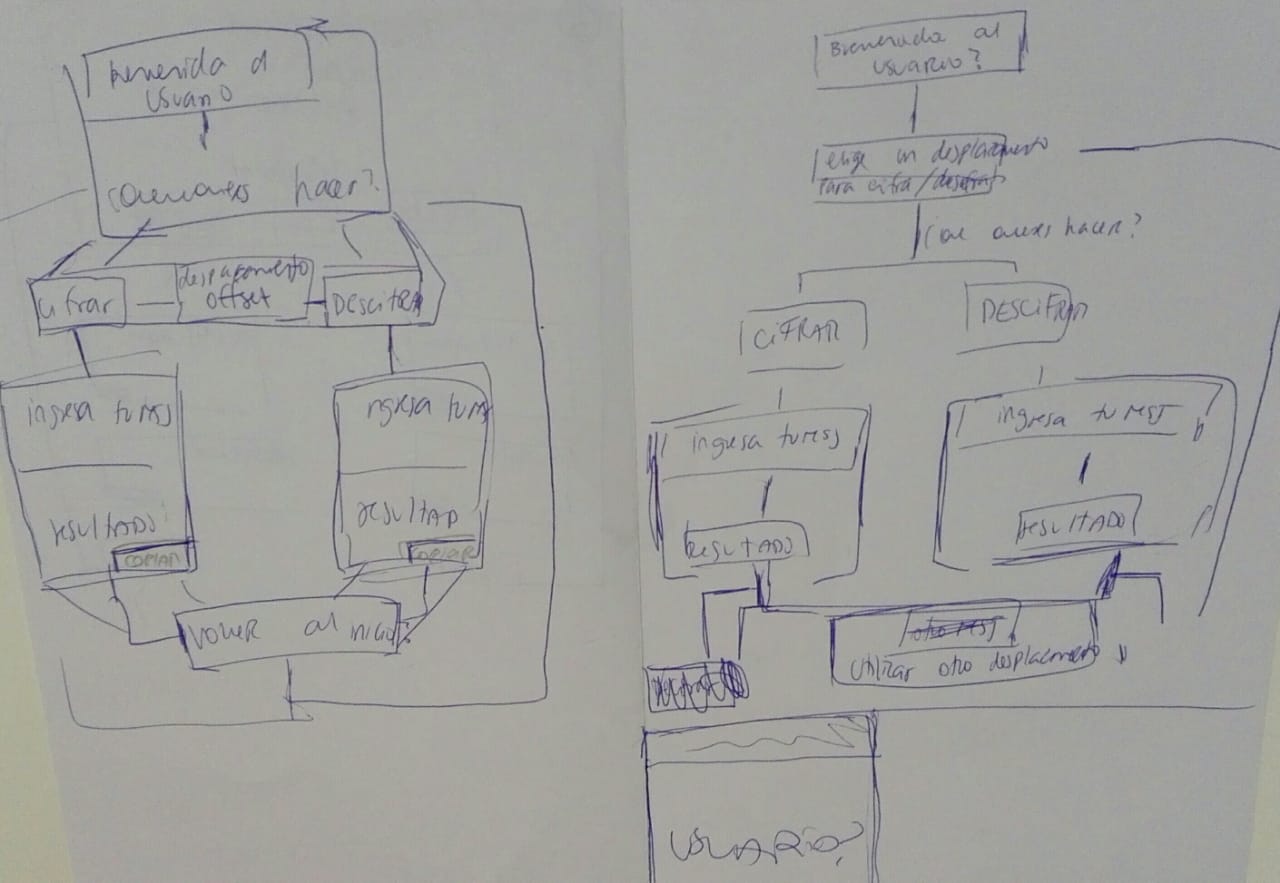 Bienvenida al
usuario
¿Que quieres hacer?
Cifrar
desplazamiento
offset
DESCiFRA
ingresa tu msj
resultado
COPIAR
ingresa tu msj
resultad
COPIAR
Volver al inicio
Bienvenida al
usuario?
elige un desplazamiento
para cifra/descifrar
¿Que quieres hacer?
CiFRAR
DESCiFRAR
ingresa tu msj
RESULTADO
ingresa tu msj
RESULTADO
otro msj
Utilizar otro desplazamiento
USUARiO?